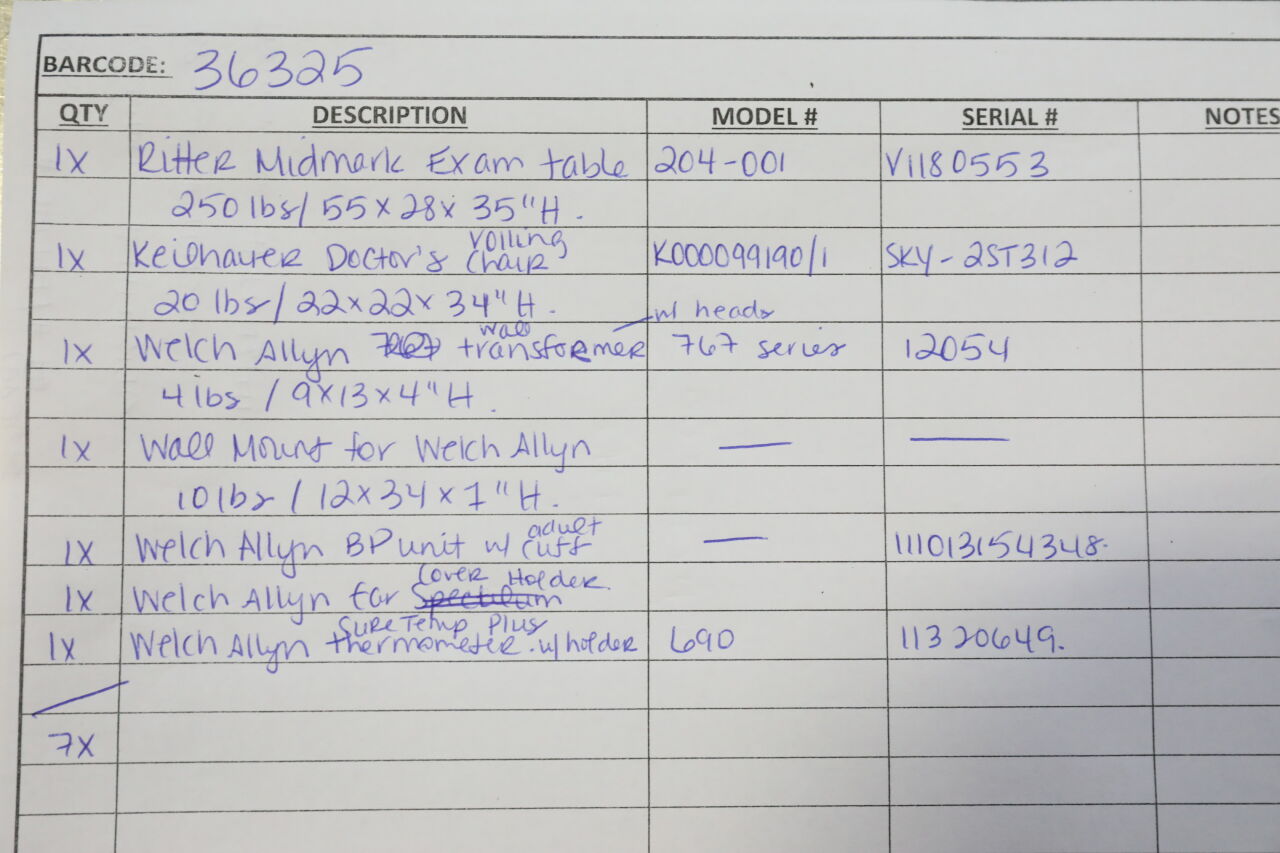 BARCODE: 36325
QTY DESCRIPTION MODEL # SERIAL # NOTES
1X Ritter Midmark Exam table 204-001 V1180553
250 lbs/ 55 x 28 x 35"H.
1X Keilhauer Doctor's rolling Chair K000099190/1 SKY-2ST312
20 lbs / 22x22x 34"H.
1X Welch Allyn wall transformer w/ heads 767 series 12054
4 lbs / 9x13x4"H.
1X Wall Mount for Welch Allyn — —
10 lbs / 12x34x7"H.
1X Welch Allyn BP unit w/ adult cuff — 111013154348.
1X Welch Allyn Ear Cover Holder
1X Welch Allyn SureTemp Plus thermometer. w/ holder 690 11320649.
7X